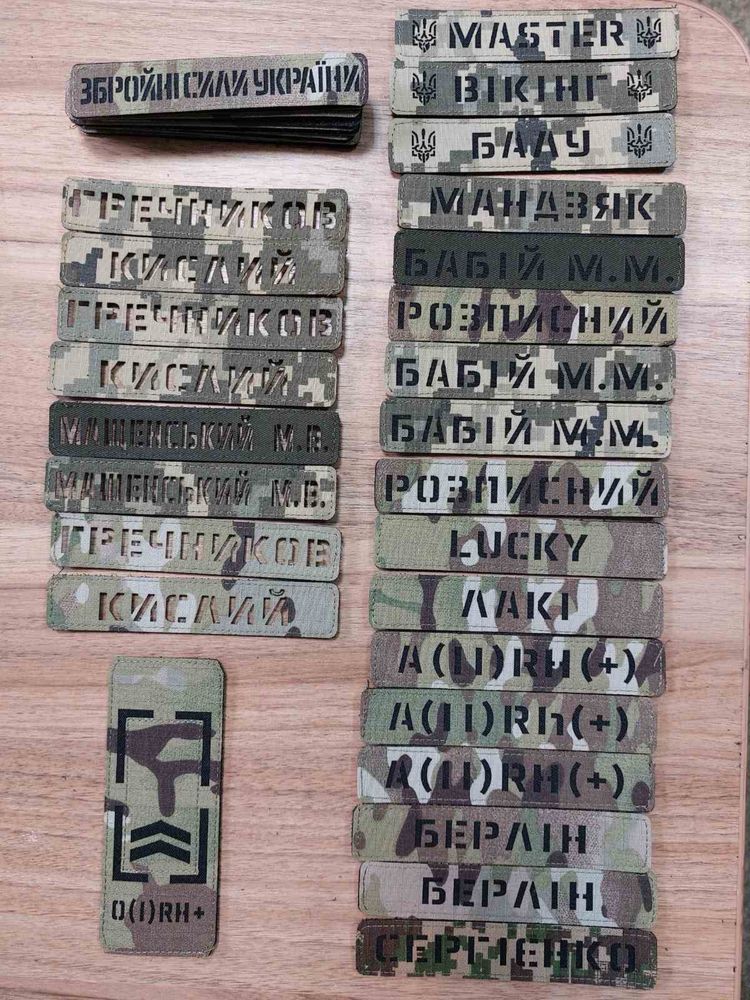 ЗБРОЙНІ СИЛИ УКРАЇНИ
ГРЕЧНИКОВ
КИСЛИЙ
ГРЕЧНИКОВ
КИСЛИЙ
МАЩЕНСЬКИЙ М.В.
МАЩЕНСЬКИЙ М.В.
ГРЕЧНИКОВ
КИСЛИЙ
O(I)RH+
MASTER
ВІКІНГ
БАЛУ
МАНДЗЯК
БАБІЙ М.М.
РОЗПИСНИЙ
БАБІЙ М.М.
БАБІЙ М.М.
РОЗПИСНИЙ
LUCKY
ЛАКІ
A(II)RH(+)
A(II)Rh(+)
A(II)RH(+)
БЕРЛІН
БЕРЛІН
СЕРГІЄНКО